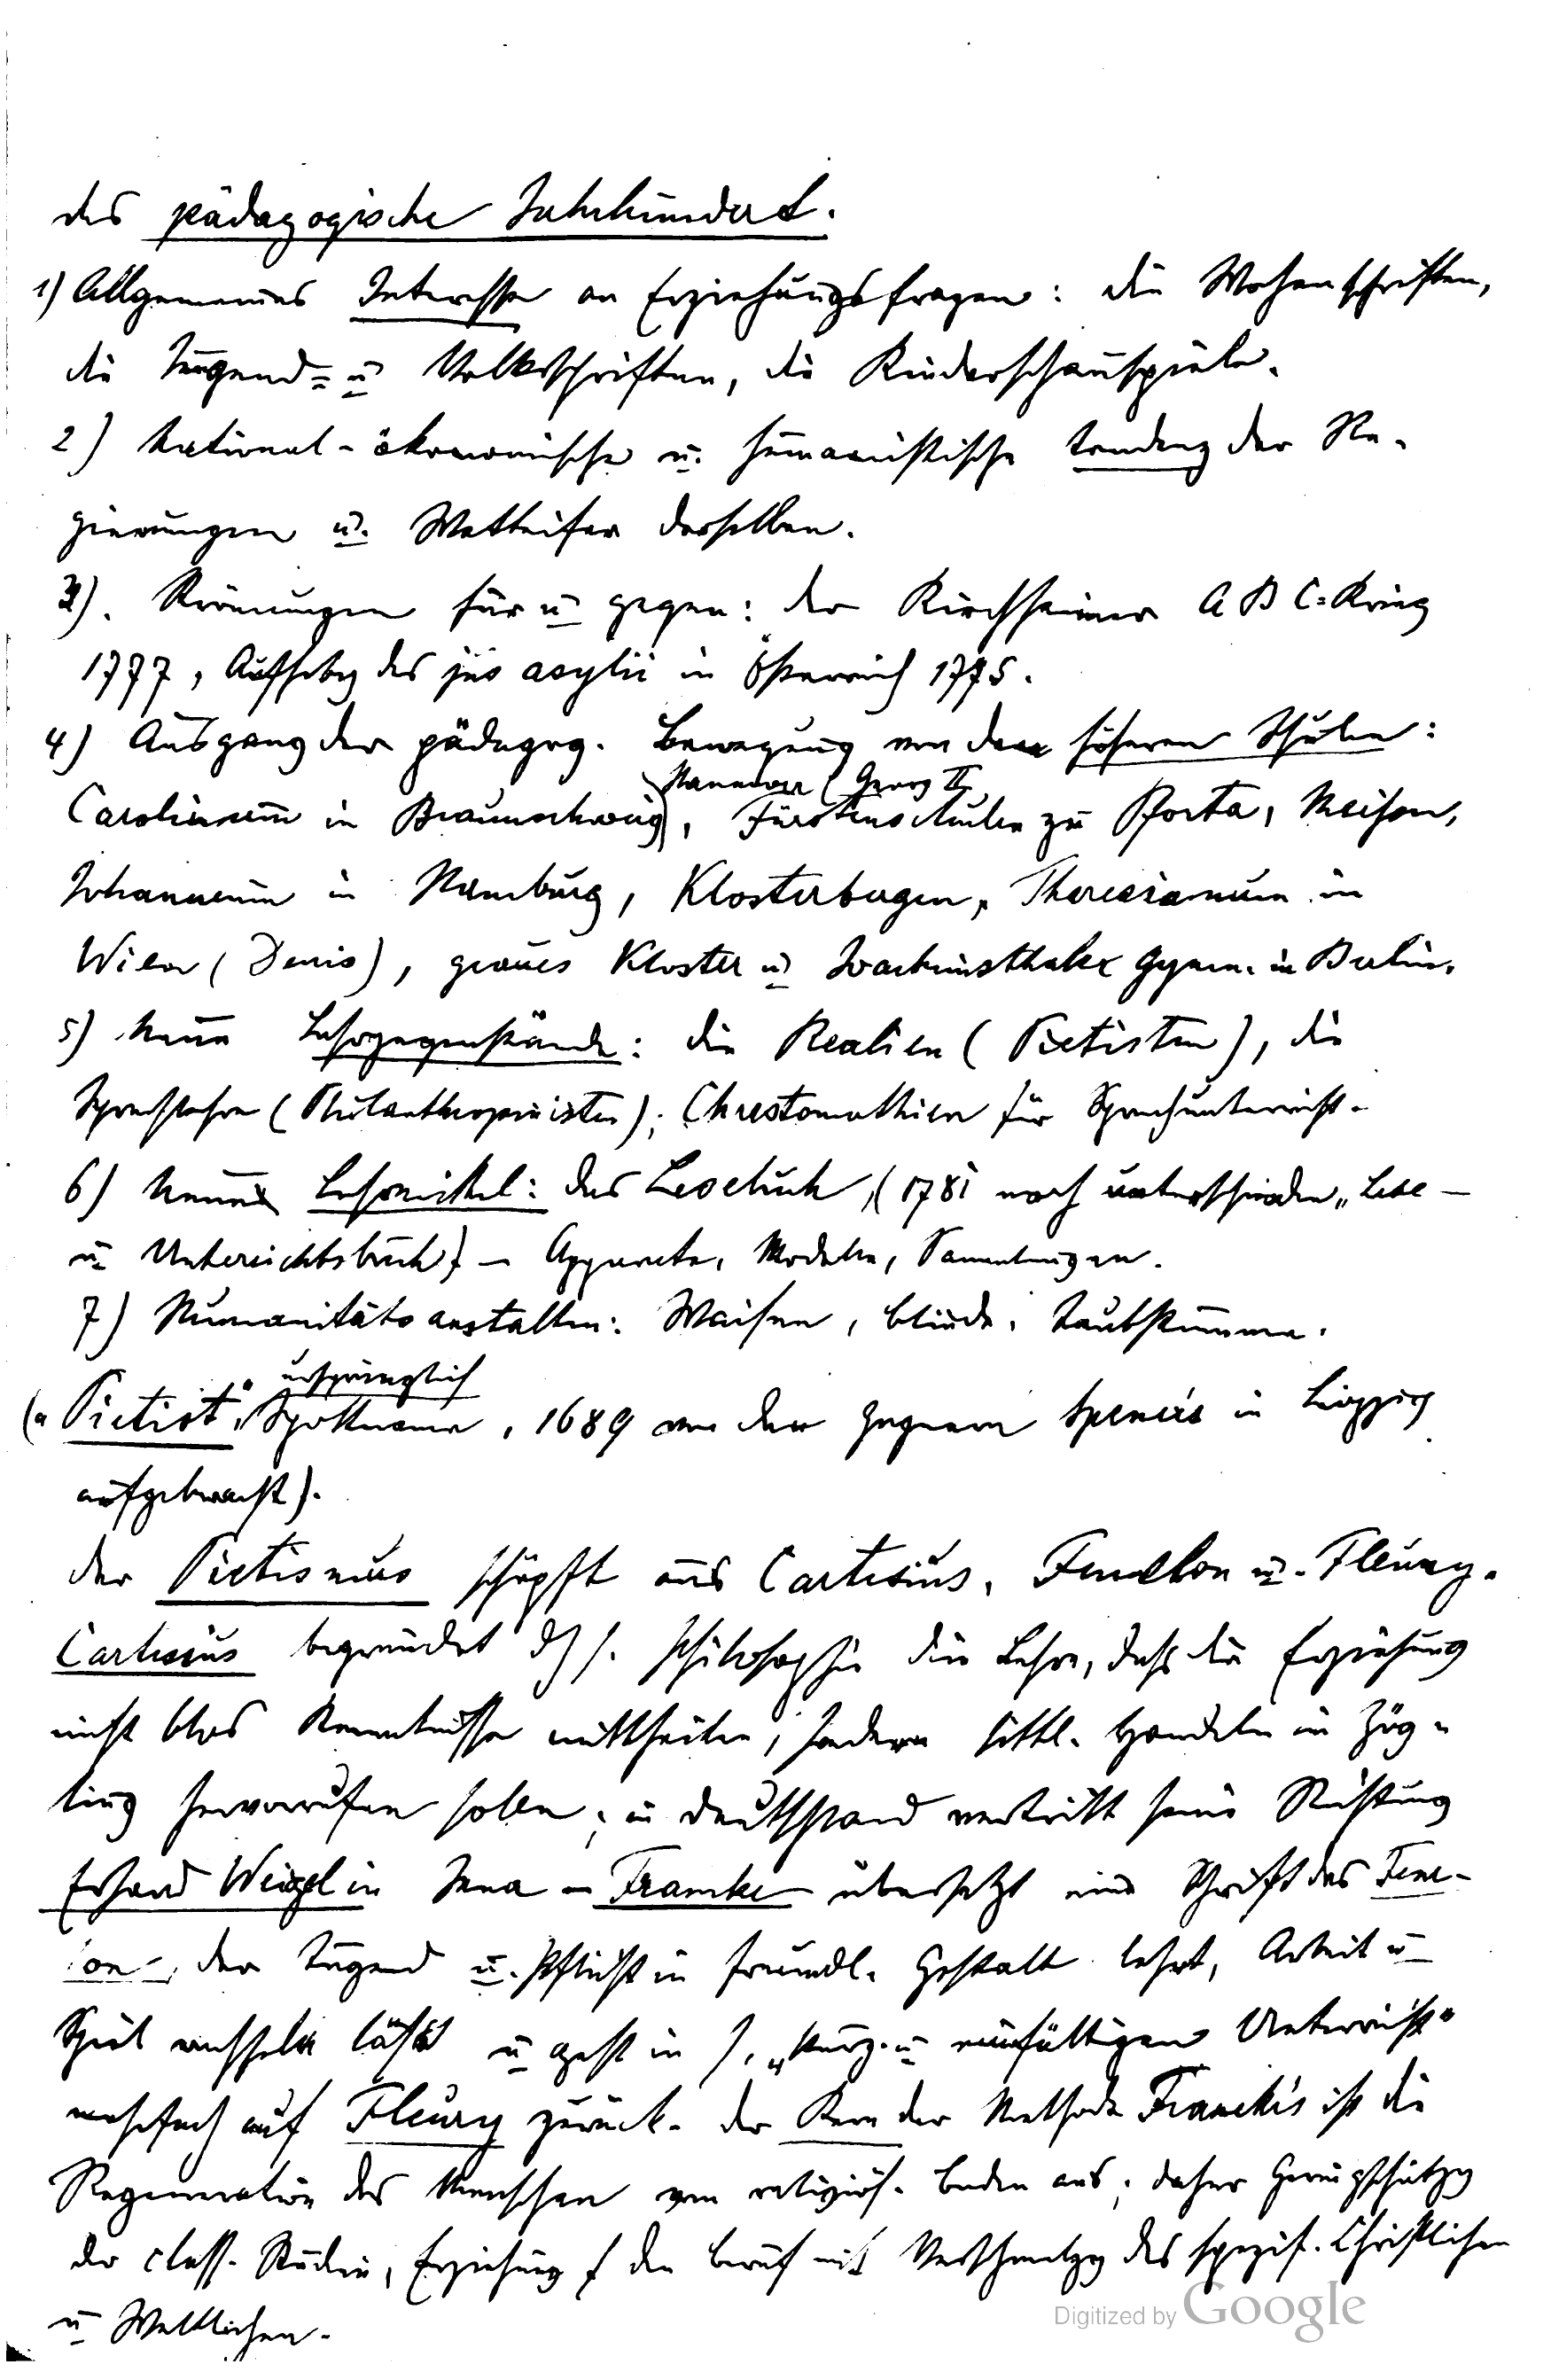 das pädagogische Jahrhundert.
1) Allgemeines Interesse an Erziehungsfragen: die Wochenschriften,
die Jugend- u Volksschriften, die Kinderschauspiele.
2) National-ökonomische u. humanistische Tendenz der Re-
gierungen u. Wetteifer derselben.
3). Strömungen für u gegen: der Kirchheimer ABC=Krieg
1777, Aufhebg des jus asylii in Österreich 1775.
4) Ausgang der pädagog. Bewegung von den höheren Schulen:
Hannover (Georg II
Carolinum in Braunschweig, Fürstenschulen zu Pforta, Meißen,
Johanneum in Hamburg, Klosterbergen, Theresianum in
Wien (Denis), graues Kloster u Joachimsthaler Gymn. in Berlin.
5) Neue Lehrgegenstände: die Realien (Pietisten), die
Sprachlehre (Philanthropinisten); Chrestomathien für Sprachunterricht.
6) Neue Lehrmittel: das Lesebuch, (1781 noch unterschieden „Lese-
u Unterichtsbuch) – Apparate, Modelle, Sammlungen.
7) Humanitätsanstalten: Waisen, blinde, Taubstumme.
ursprünglich
(„Pietist" Spottname, 1689 von den Gegnern Spener's in Leipzig
aufgebracht).
der Pietismus schöpft aus Cartesius, Fenelon u. Fleury.
Cartesius begründet s. Philosophie die Lehre, daß die Erziehung
nicht blos Kenntnisse mittheilen, sondern sittl. Handeln im Zög-
ling hervorrufen solle; in Deutschland vertritt seine Richtung
Erhard Weigel in Jena – Francke übersetzt eine Schrift des Fene-
lon, der Tugend u. Pflicht in freundl. Gestalt lehrt, Arbeit u
Spiel wechseln läßt u geht in s. „kurz. u einfältigen Unterricht"
mehrfach auf Fleury zurück. der Kern der Methode Francke's ist die
Regeneration des Menschen vom religiös. Boden aus; daher Geringschätzg
der class. Studien, Erziehung f den Beruf mit Verschmelzg des spezif. Christlichen
u Weltlichen.
Digitized by Google